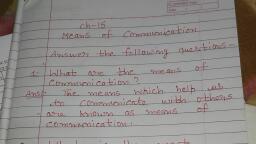 Ch-15
Means of Communication
Answer the following questions-
1. What are the means of
Communication?
Ans: The means which help us
to Communicate with others
are known as means of
communication.